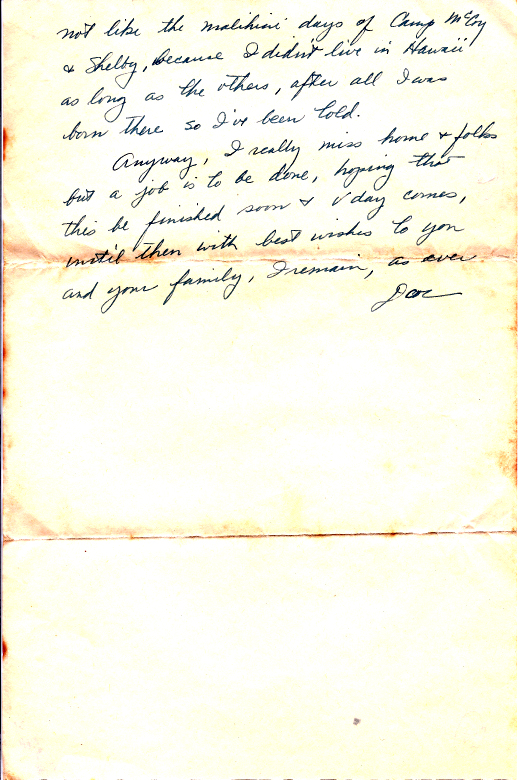 not like the malihini days of Camp McCoy
& Shelby, because I didn't live in Hawaii
as long as the others, after all I was
born there so I've been told.
Anyway, I really miss home & folks
but a job is to be done, hoping that
this be finished soon & V day comes,
until then with best wishes to you
and your family, I remain, as ever
Doc